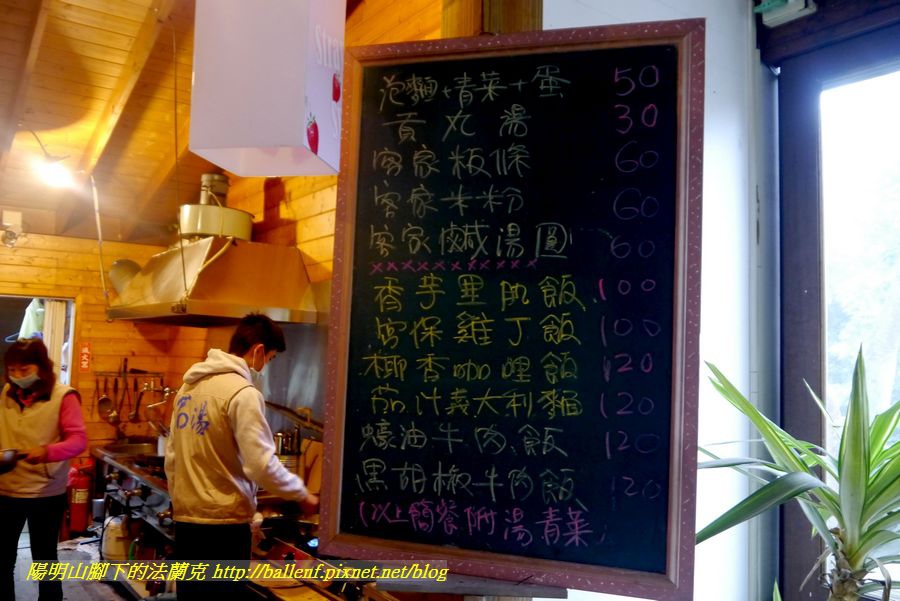 泡麵+青菜+蛋 50
貢丸湯 30
客家板條 60
客家米粉 60
客家鹹湯圓 60
香芋里肌飯 100
宮保雞丁飯 100
椰香咖哩飯 120
茄汁義大利麵 120
蠔油牛肉飯 120
黑胡椒牛肉飯 120
(以上簡餐附湯青菜)
湯
陽明山腳下的法蘭克 http://ballenf.pixnet.net/blog